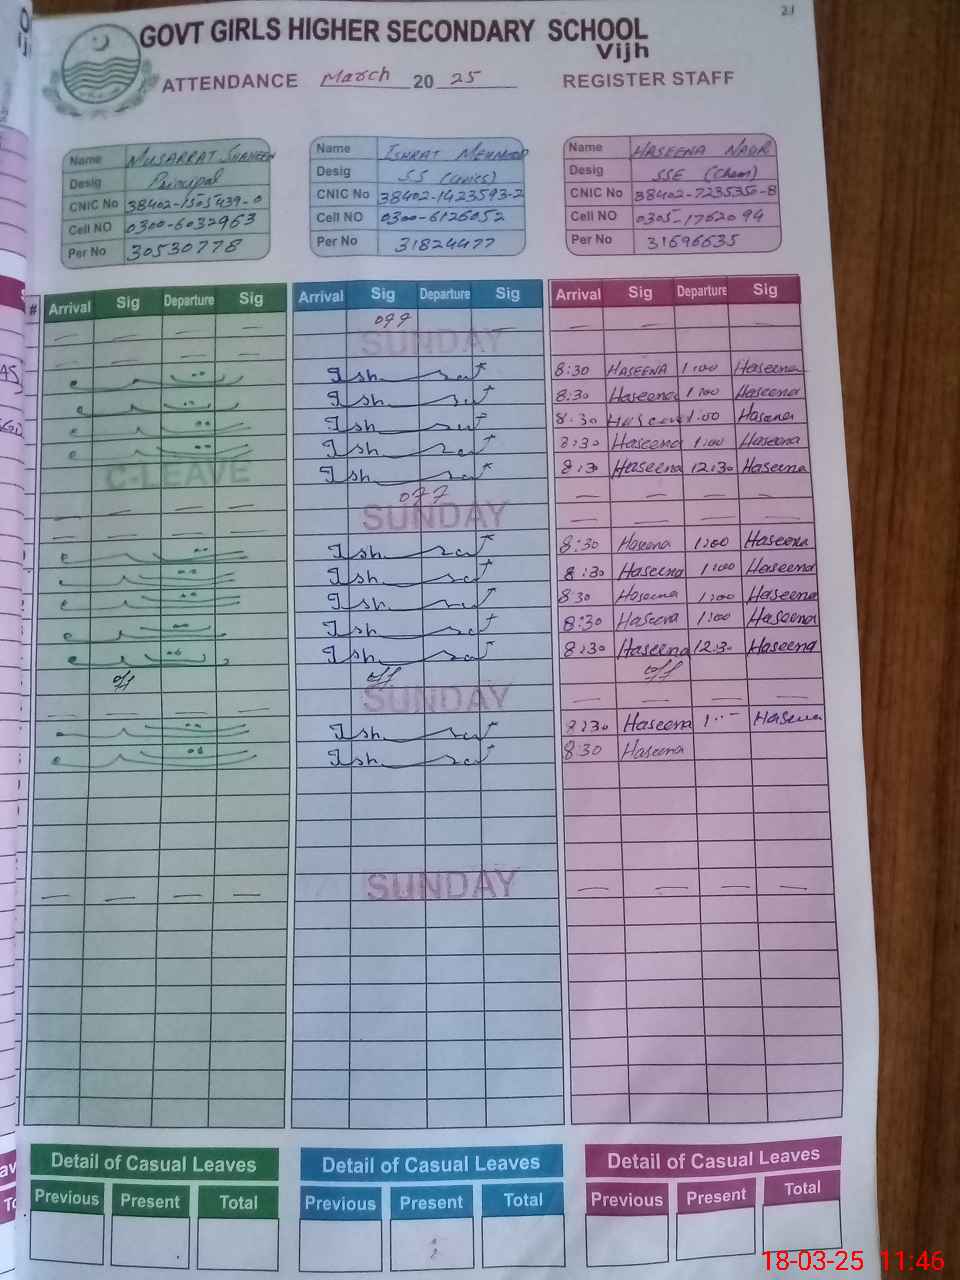 21
GOVT GIRLS HIGHER SECONDARY SCHOOL
Vijh
ATTENDANCE March 2025 REGISTER STAFF
Name MUSARRAT SHAHEEN
Desig Principal
CNIC No 38402-1505439-0
Cell NO 0300-6032963
Per No 30530778
Name ISHRAT
Desig SS
CNIC No 38402-1423593-2
Cell NO 0300-6126052
Per No 31824477
Name HASEENA
Desig SSE (Chem)
CNIC No 38402-7235350-8
Cell NO 0305-1762094
Per No 31696635
# Arrival Sig Departure Sig Arrival Sig Departure Sig Arrival Sig Departure Sig
off
SUNDAY
8:30 HASEENA 1:00 Haseena
8:30 Haseena 1:00 Haseena
8:30 Haseena 1:00 Haseena
8:30 Haseena 1:00 Haseena
C-LEAVE 8:30 Haseena 12:30 Haseena
off
SUNDAY
8:30 Haseena 1:00 Haseena
8:30 Haseena 1:00 Haseena
8:30 Haseena 1:00 Haseena
8:30 Haseena 1:00 Haseena
8:30 Haseena 12:30 Haseena
off off off
SUNDAY
8:30 Haseena Haseena
8:30 Haseena
SUNDAY
Detail of Casual Leaves Detail of Casual Leaves Detail of Casual Leaves
Previous Present Total Previous Present Total Previous Present Total
18-03-25 11:46